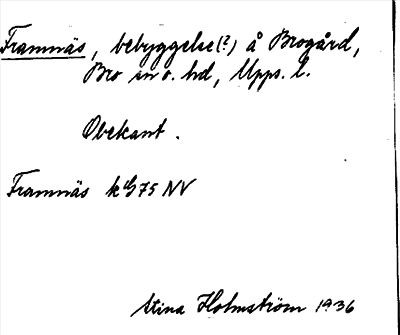 Framnäs, bebyggelse (?) å Brogård,
Bro sn o. hd, Upps. l.
Obekant.
Framnäs k 75 NV
Stina Holmström 1936